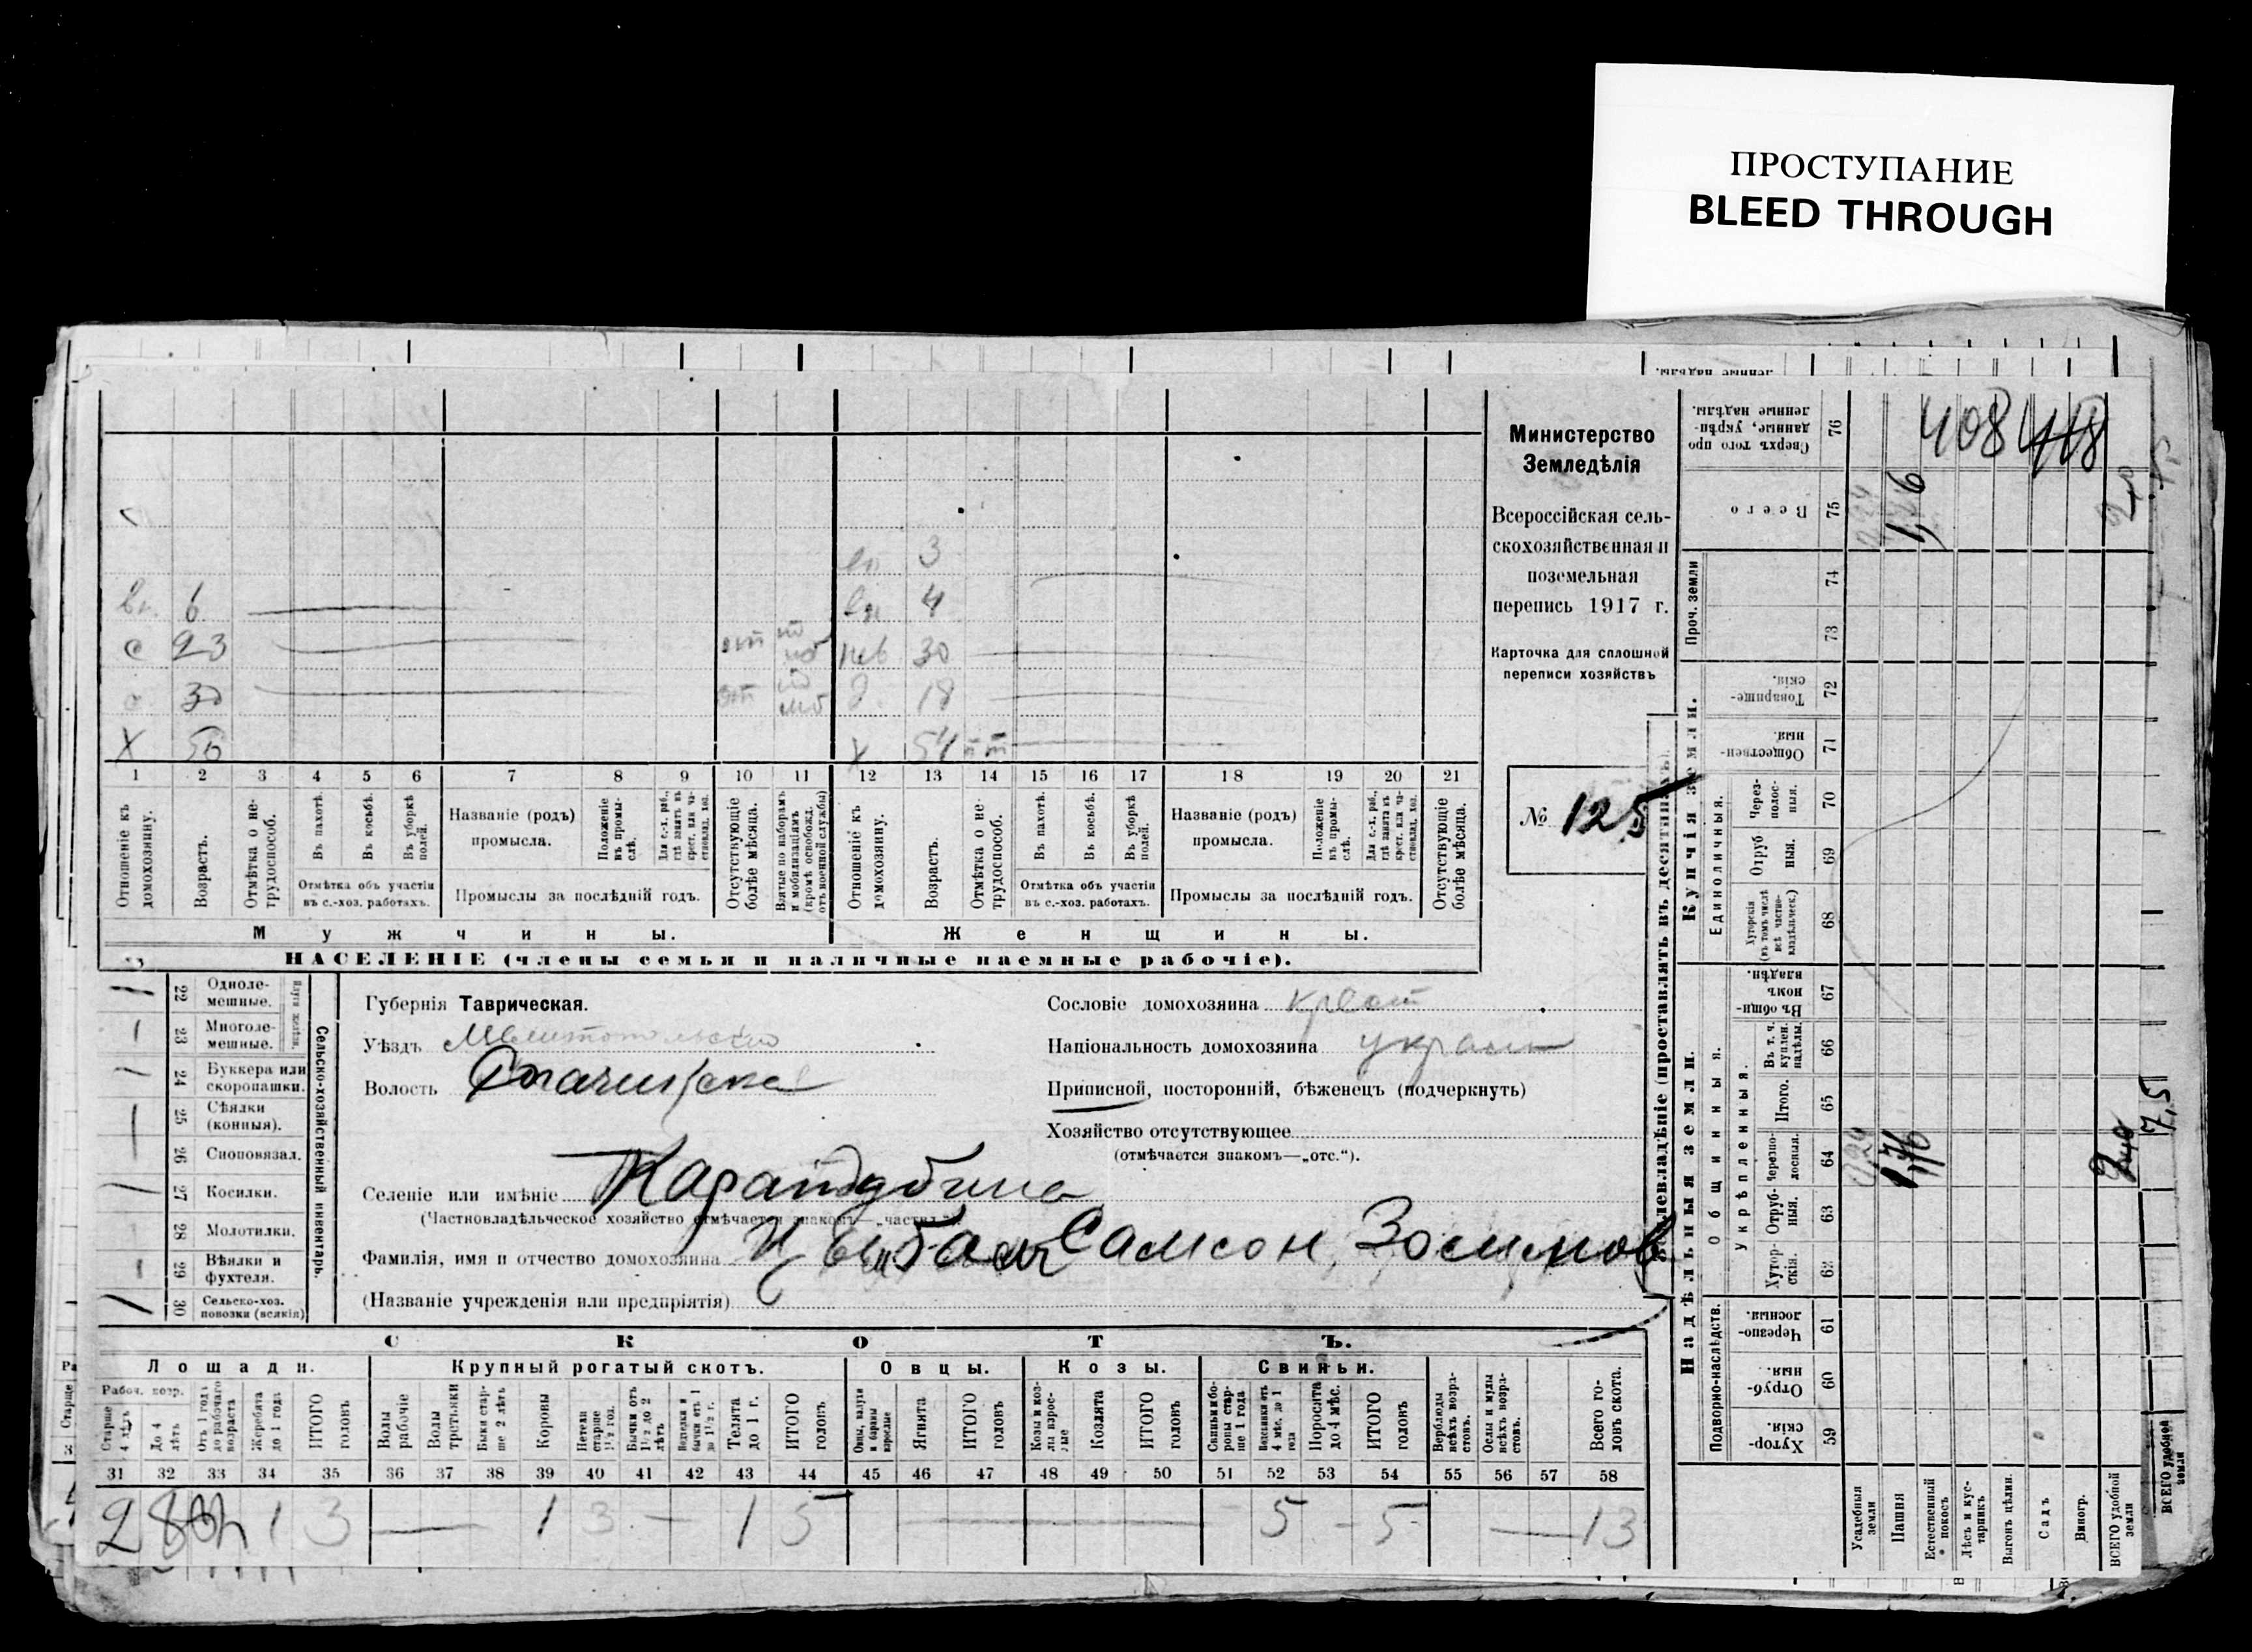 ПРОСТУПАНИЕ
BLEED THROUGH
Министерство
Земледѣлія
Всероссійская сель-
скохозяйственная и
поземельная
перепись 1917 г.
Карточка для сплошной
переписи хозяйствъ
№ 125
3
6 4
с 23 30
30 18
X 50 54
1 2 3 4 5 6 7 8 9 10 11 12 13 14 15 16 17 18 19 20 21
Отношеніе къ домохозяину.
Возрастъ.
Отмѣтка о не-трудоспособ.
Въ пахотѣ.
Въ косьбѣ.
Въ уборкѣ полей.
Отмѣтка объ участіи
въ с.-хоз. работахъ.
Названіе (родъ)
промысла.
Положеніе въ промы-слѣ.
Промыслы за послѣдній годъ.
Отсутствующіе болѣе мѣсяца.
Взятые по наборамъ и мобилизаціямъ (кромѣ освобожд. отъ военной службы)
Отношеніе къ домохозяину.
Возрастъ.
Отмѣтка о не-трудоспособ.
Въ пахотѣ.
Въ косьбѣ.
Въ уборкѣ полей.
Отмѣтка объ участіи
въ с.-хоз. работахъ.
Названіе (родъ)
промысла.
Положеніе въ промы-слѣ.
Промыслы за послѣдній годъ.
Отсутствующіе болѣе мѣсяца.
Мужчины. Женщины.
НАСЕЛЕНІЕ (члены семьи и наличные наемные рабочіе).
Сельско-хозяйственный инвентарь.
22 Одноле-мешные.
23 Многоле-мешные.
24 Буккера или скоропашки.
25 Сѣялки (конныя).
26 Сноповязал.
27 Косилки.
28 Молотилки.
29 Вѣялки и фухтеля.
30 Сельско-хоз. повозки (всякія)
Губернія Таврическая.
Уѣздъ Мелитопольскій
Волость
Селеніе или имѣніе
(Частновладѣльческое хозяйство отмѣчается знакомъ—„частвл.“).
Фамилія, имя и отчество домохозяина Самсон Зосимов
(Названіе учрежденія или предпріятія)
Сословіе домохозяина крест
Національность домохозяина украин
Приписной, посторонній, бѣженецъ (подчеркнуть)
Хозяйство отсутствующее
(отмѣчается знакомъ—„отс.“).
СКОТЪ.
Лошади. Крупный рогатый скотъ. Овцы. Козы. Свиньи.
Рабоч. возр.
Старше 4 лѣтъ
До 4 лѣтъ
Отъ 1 года до рабочаго возраста
Жеребята до 1 года
ИТОГО головъ
Волы рабочіе
Волы третьяки
Быки стар-ше 2 лѣтъ
Коровы
Нетели старше 1½ год.
Бычки отъ 1½ до 2 лѣтъ
Телята до 1 г.
ИТОГО головъ
Овцы, валухи и бараны взрослые
Ягнята
ИТОГО головъ
Козы и коз-лы взрос-лые
Козлята
ИТОГО головъ
Свиньи и бо-ровы стар-ше 1 года
Подсвинки отъ 4 мѣс. до 1 года
Поросята до 4 мѣс.
ИТОГО головъ
Верблюды всѣхъ возра-стовъ.
Ослы и мулы всѣхъ возра-стовъ.
Всего го-ловъ скота.
31 32 33 34 35 36 37 38 39 40 41 42 43 44 45 46 47 48 49 50 51 52 53 54 55 56 57 58
2 1 3 — 1 3 — 1 5 — 5 — 5 — 13
Землевладѣніе (проставлять въ десятинахъ).
Купчія земли.
Надѣльныя земли.
Сверхъ того про данные, укрѣп-ленные надѣлы. 76
Всего 75
Проч. земли 74 73
Товарище-скія. 72
Обществен-ныя. 71
Единоличныя.
Через-полос-ныя. 70
Отруб ныя. 69
Хуторскія (въ томъ числѣ всѣ частно-владѣльческ.) 68
Общинныя.
Въ общин-номъ владѣн. 67
Укрѣпленныя.
Въ т. ч. куплен. надѣлы. 66
Итого. 65
Черезпо-лосныя. 64
Отруб-ныя. 63
Хутор-скія. 62
Подворно-наслѣдств.
Черезпо-лосныя. 61
Отруб-ныя. 60
Хутор-скія. 59
Усадебныя земли
Пашня
Естественный покосъ
Лѣсъ и кус-тарникъ
Выгонъ цѣлин.
Садъ
Виногр.
ВСЕГО удобной земли
ВСЕГО удобной земли
408 418
1,76
0,24
1,76
7,5